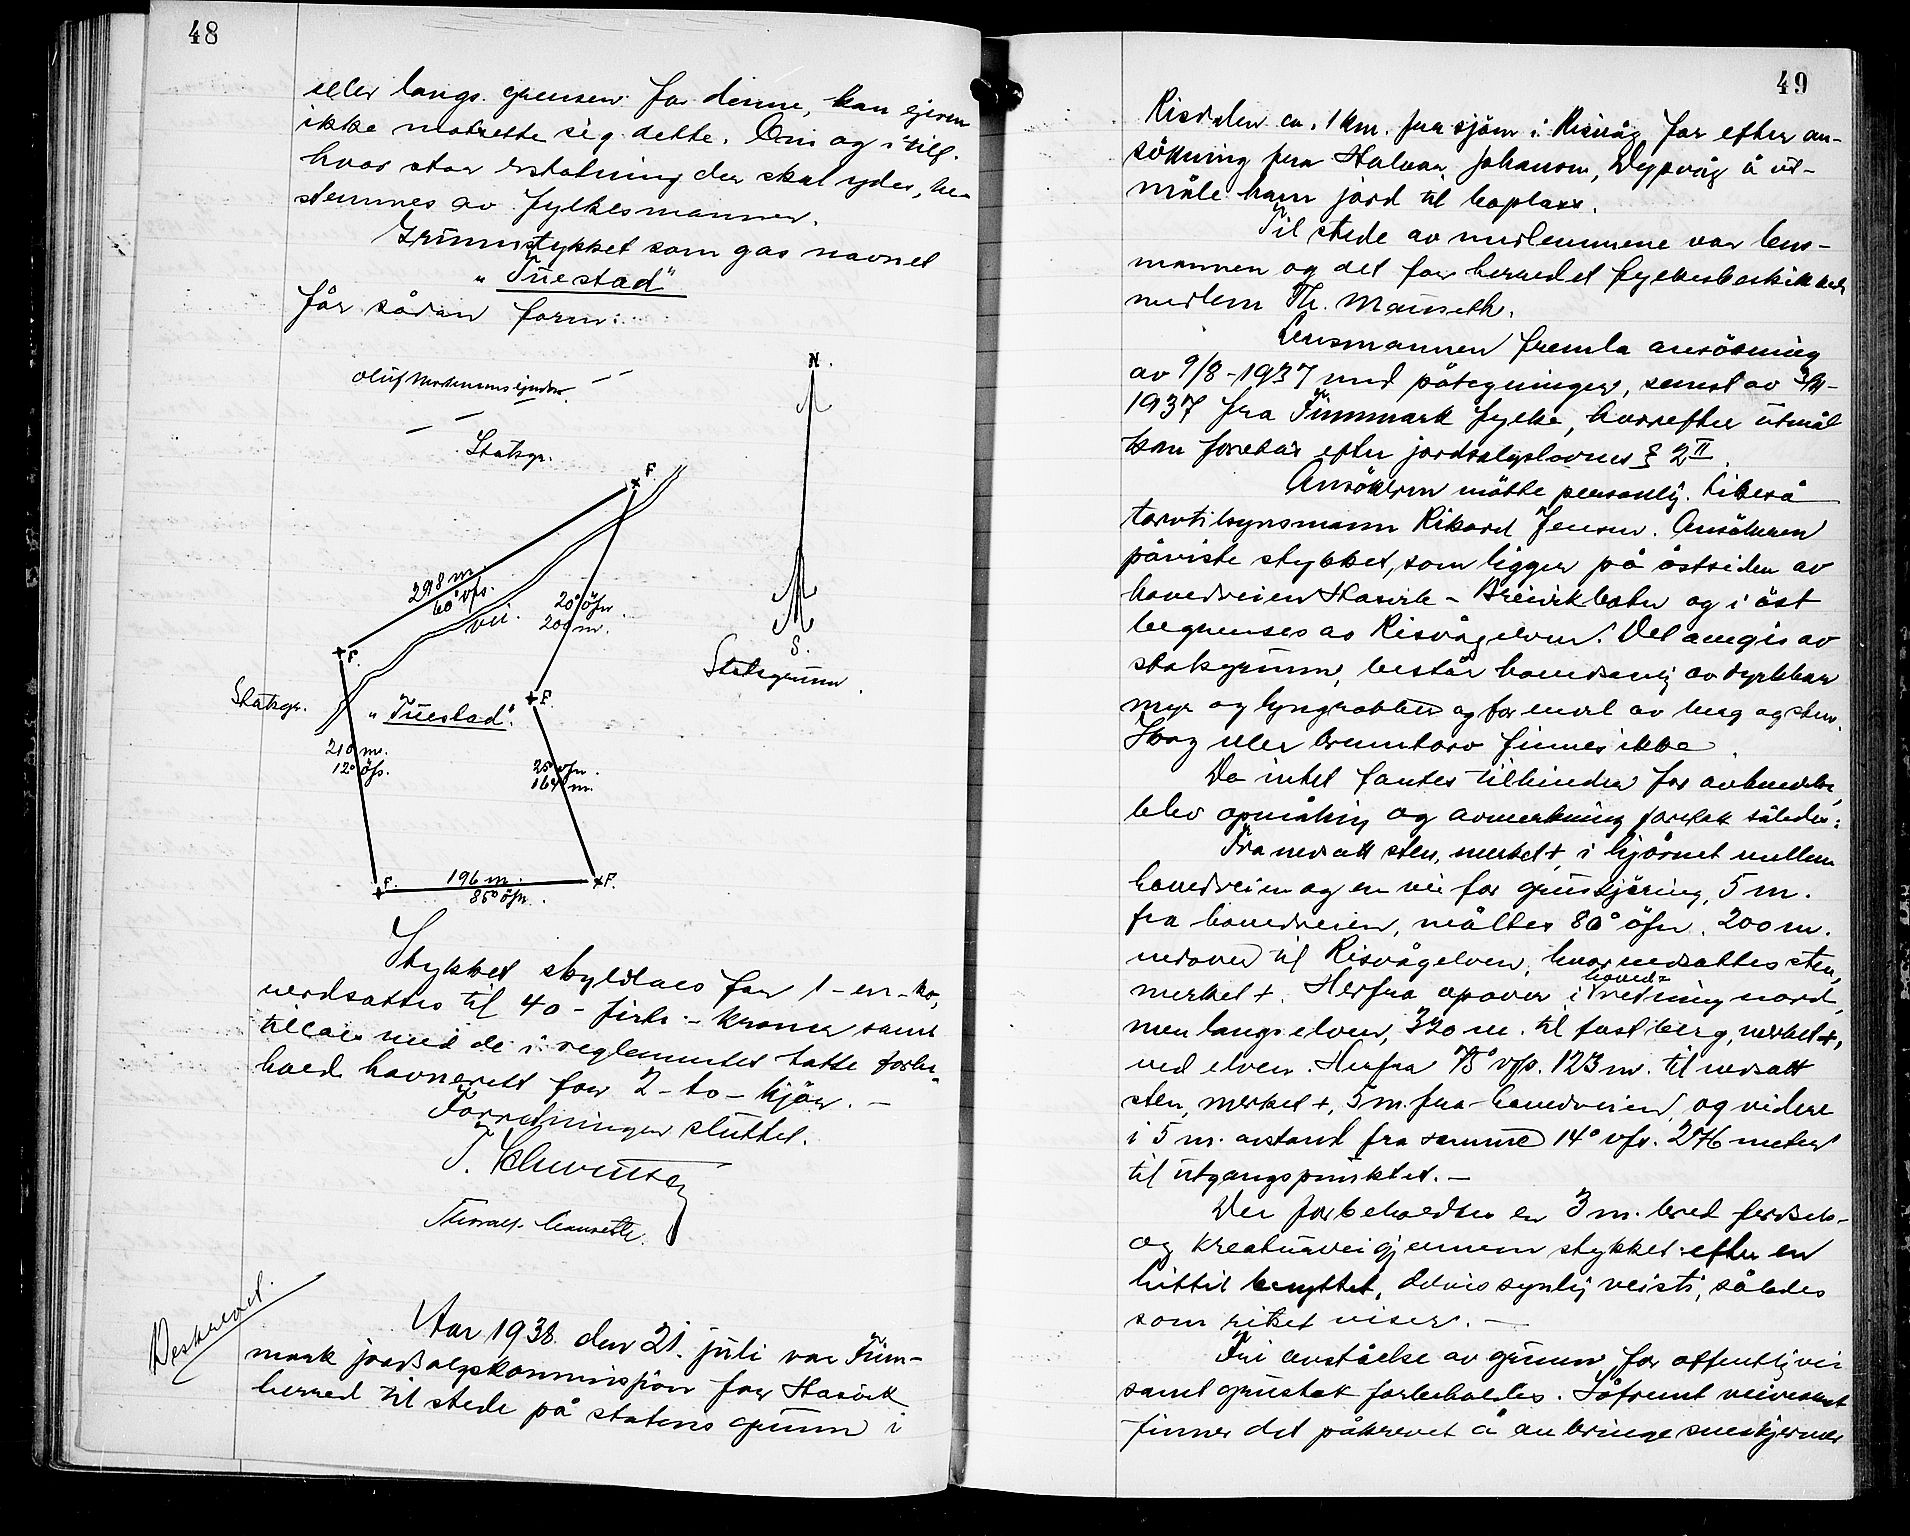 48
eller langs grensen for denne, kan eieren
ikke motsette sig dette. Om og i tilf.
hvor stor erstatning der skal ydes, be-
stemmes av fylkesmannen.
Grunnstykket som gas navnet
"Tuestad"
får sådan form:
Oluf Mortensens eiendom.
N.
Statsgr.
F.
298 m.
60° vfs.
vei.
20° öfn.
200 m.
F.
S.
Statsgrunn.
Statsgr.
"Tuestad".
F.
210 m.
12° öfs.
25° vfn.
164 m.
F. 196 m. F.
85° öfn.
Stykket skyldlaes for 1 - en - öre,
verdsattes til 40 - firti - kroner samt
tillaes med de i reglementet tatte forbe-
hold havnerett for 2 - to - kjör. -
Forretningen sluttet.
Thoralf Mauseth.
Beskrevet.
Aar 1938 den 21. juli var Finn-
mark jordsalgskommisjon for Hasvik
herred til stede på statens grunn i
49
Risdalen ca. 1 km. fra sjöen i Risvåg for efter an-
sökning fra Halvar Johansen, Dypvåg å ut-
måle ham jord til boplass.
Til stede av medlemmene var lens-
mannen og det for herredet fylkesbeskikkede
medlem Th. Mauseth.
Lensmannen fremla ansökning
av 9/8 - 1937 med påtegninger, senest av
1937 fra Finnmark fylke, hvorefter utmål
kan foretas efter jordsalgslovens § 2 II.
Ansökeren mötte personlig. Likeså
torvtilsynsmann Rikard Jensen. Ansökeren
påviste stykket, som ligger på östsiden av
hovedveien Hasvik - Breivikbotn og i öst
begrenses av Risvågelven. Det omgis av
statsgrunn, består hovedsaklig av dyrkbar
myr og lyngrabber og for en del av berg og sten.
Skog eller brenntorv finnes ikke.
Da intet fantes til hinder for avhendelse,
blev opmåling og avmerkning foretatt således:
Fra nedsatt sten, merket +, i hjörnet mellem
hovedveien og en vei for gruskjöring, 5 m.
fra hovedveien, måltes 80° öfn. 200 m.
nedover til Risvågelven, hvor nedsattes sten,
merket +. Herfra opover i hoved= retning nord,
men langs elven, 320 m. til fast berg, merket +,
ved elven. Herfra 75° vfs. 123 m. til nedsatt
sten, merket +, 5 m. fra hovedveien, og videre
i 5 m. avstand fra samme 14° vfs. 276 meter
til utgangspunktet. -
Der forbeholdes en 3 m. bred ferdsels-
og kreaturvei gjennem stykket efter en
hittil benyttet, delvis synlig veisti, således
som risset viser. -
Fri avståelse av grunn for offentlig vei
samt grustak forbeholdes. Såfremt veivesenet
finner det påkrevet å anbringe sneskjermer